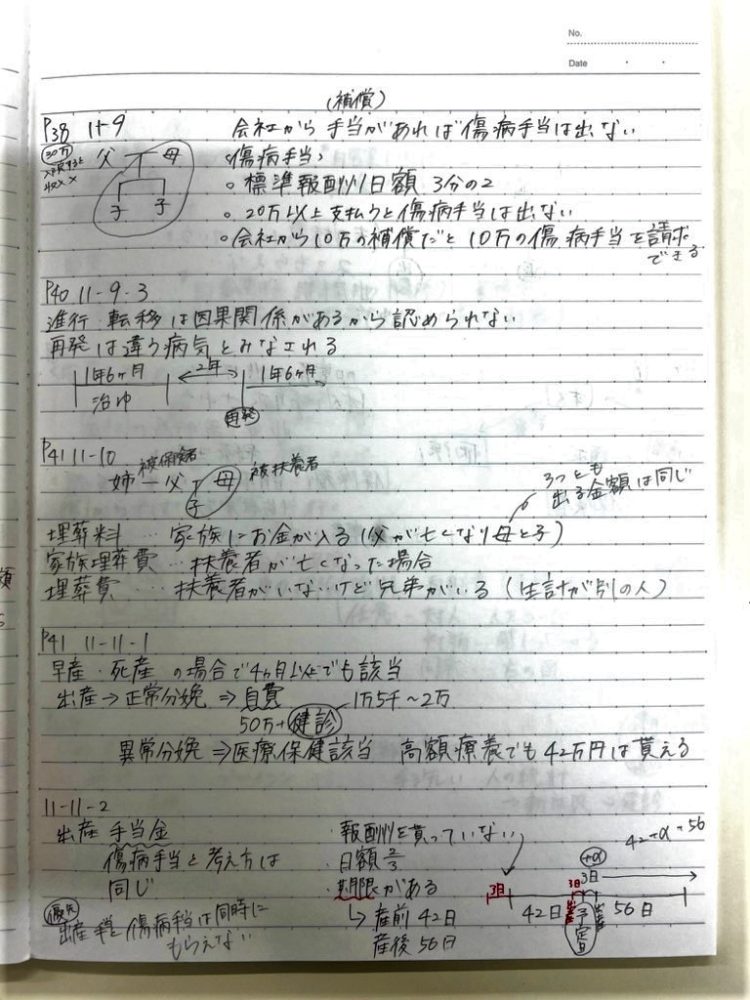 No.
Date
(補償)
P38 11-9 会社から手当があれば傷病手当は出ない
30万 父 母 傷病手当
子 子 。標準報酬月日額 3分の2
。20万以上支払うと傷病手当は出ない
。会社から10万の補償だと10万の傷病手当を請求
できる
P40 11-9-3
進行・転移は因果関係があるから認められない
再発は違う病気とみなされる
1年6ヶ月 2年 1年6ヶ月
治ゆ 再発
P41 11-10
姉 被保険者 父 母 被扶養者
子
3つとも
出る金額は同じ
埋葬料 … 家族にお金が入る(父が亡くなり母と子)
家族埋葬費 … 扶養者が亡くなった場合
埋葬費 … 扶養者がいないけど兄弟がいる(生計が別の人)
P41 11-11-1
早産・死産の場合で4ヶ月以上でも該当
出産→正常分娩⇒自費 1万5千~2万
50万+健診
異常分娩⇒医療保健該当 高額療養でも42万円は貰える
11-11-2
出産手当金 ・報酬を貰っていない
傷病手当と考え方は ・日額2/3
同じ ・期限がある
↳産前42日
産後56日
42+α+56
+α
3日 3日 3日
42日 予定日 56日
優先
出産手当と傷病手当は同時に
もらえない